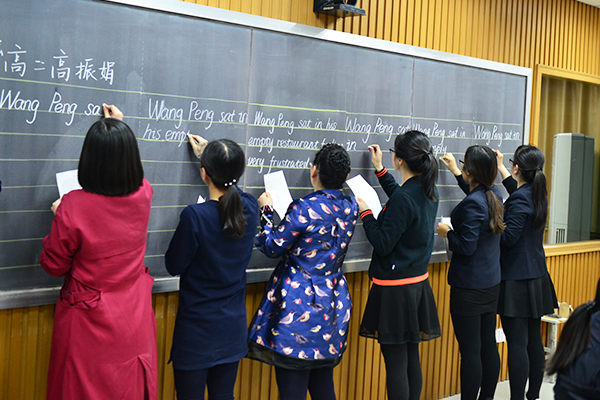 高二高振娟
Wang Peng sa
Wang Peng sat in
his emp
Wang Peng sat in his
empty restaurant
very frustrated
Wang Peng
Wang Peng sat in
empty
Wang Peng sat